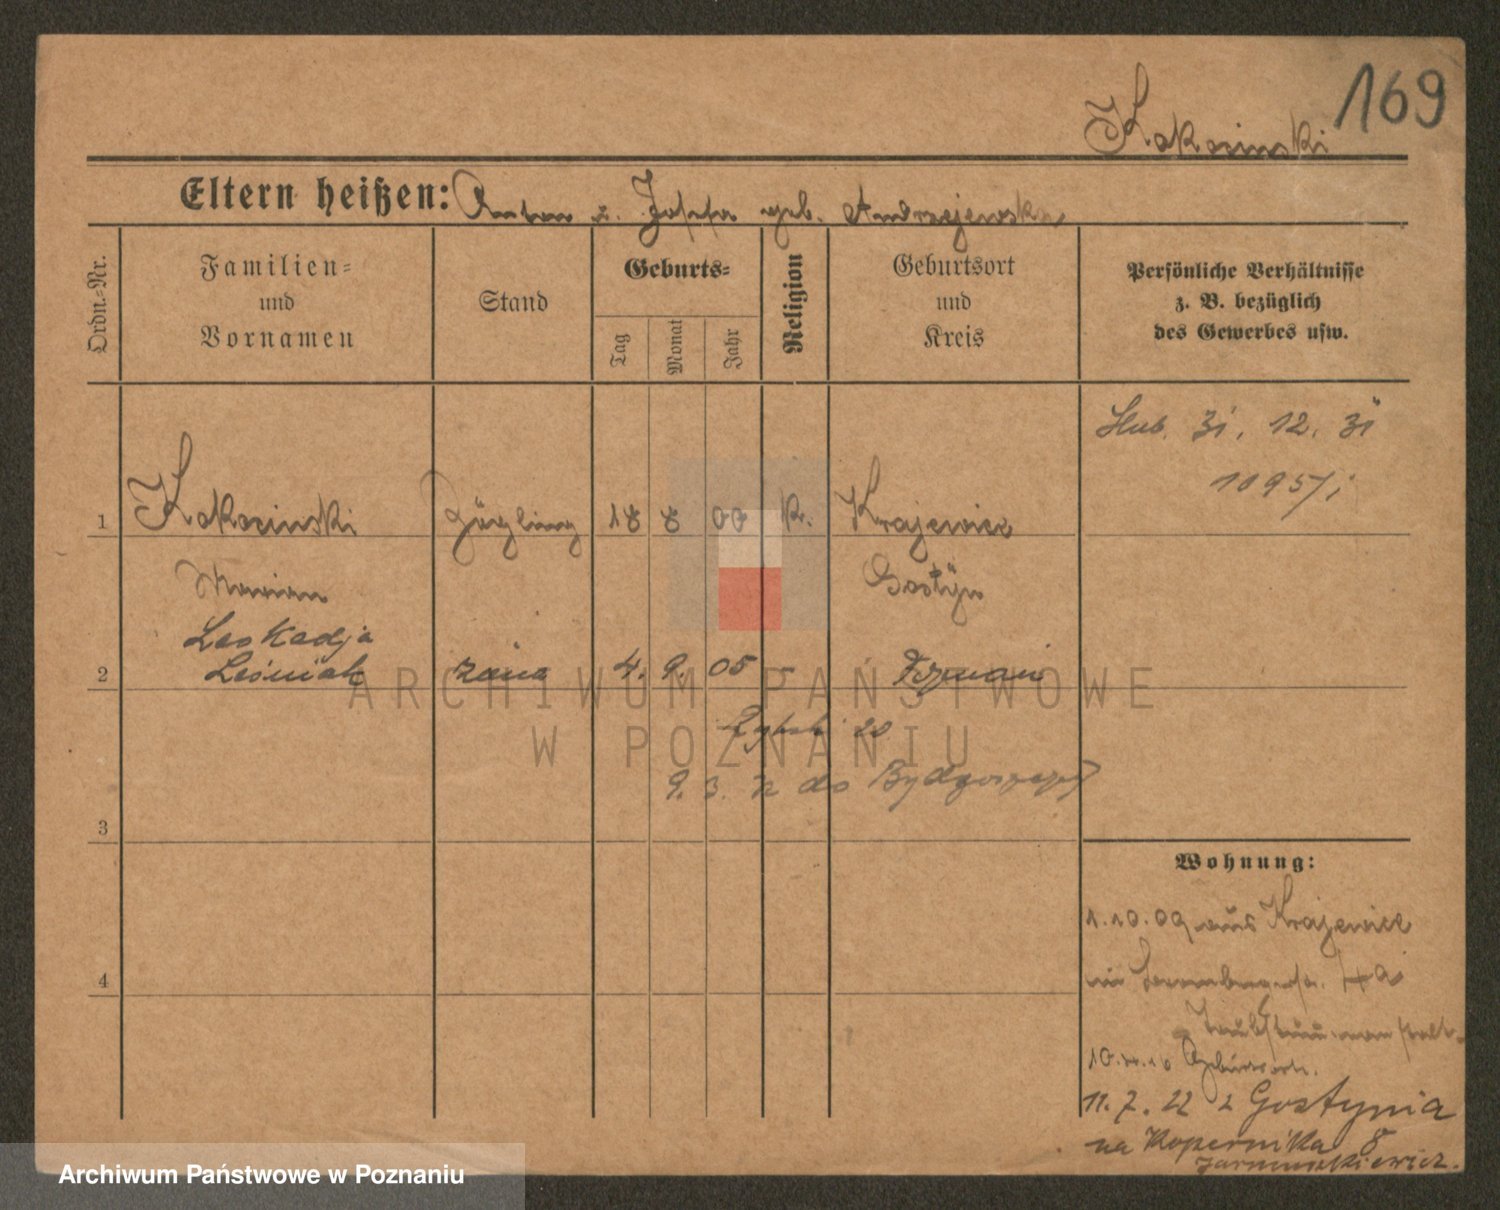 169
Kokocinski
Eltern heißen: Anton u. Josefa geb. Andrzejewska
Ordn.-Nr.
Familien-
und
Vornamen
Stand
Geburts-
Tag
Monat
Jahr
Religion
Geburtsort
und
Kreis
Persönliche Verhältnisse
z. B. bezüglich
des Gewerbes usw.
31. 12. 31
1095/
1 Kokocinski Zögling 18 8 00 k. Krajewice
Marian Gostÿn
Leokadja
2 Leśniak żona 4. 9. 05 - Poznań
Rybaki 20
9. 3. do Bydgoszczy
3
Wohnung:
1.10.09 aus Krajewice
4
4a
Taubstummenanstalt
10. Geburtsort.
11.7.22 z Gostynia
na Kopernika 8
ARCHIWUM PAŃSTWOWE
W POZNANIU
Archiwum Państwowe w Poznaniu